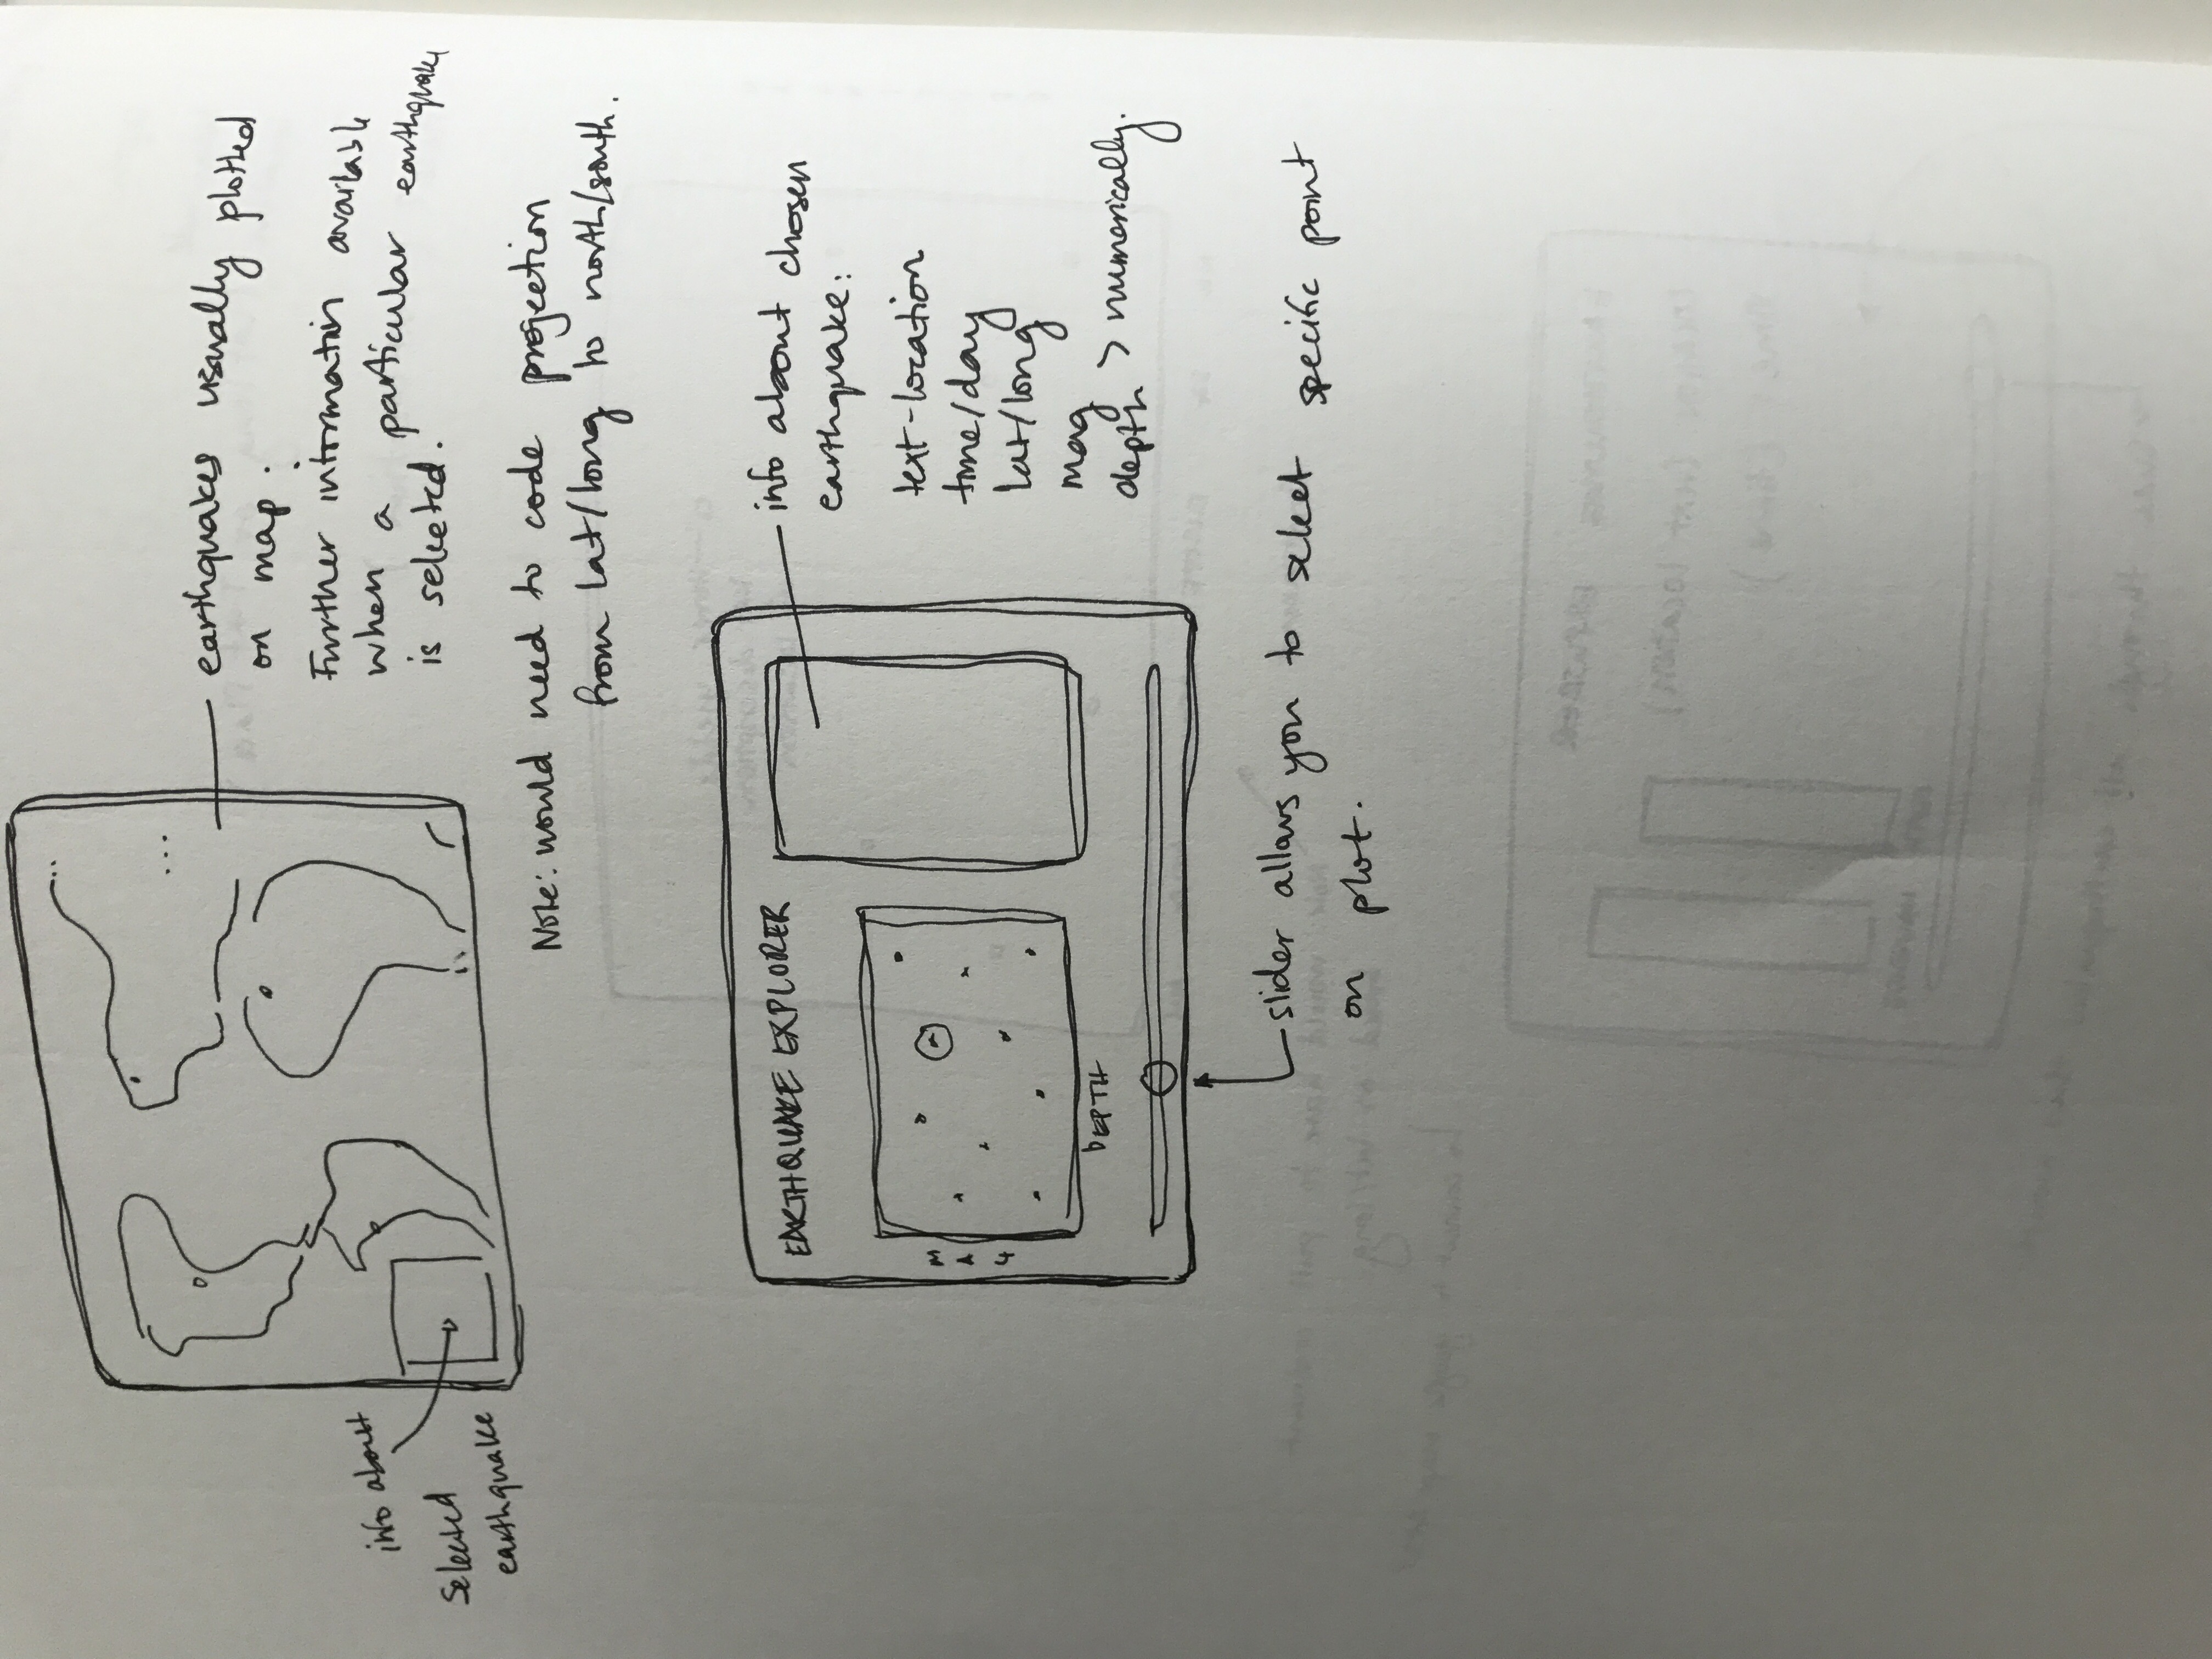 earthquakes usually plotted
on map.
Further information available
when a particular earthquake
is selected.
info about
selected
earthquake
Note: would need to code projection
from lat/long to north/south.
EARTHQUAKE EXPLORER
MAG
DEPTH
info about chosen
earthquake:
text-location
time/day
lat/long
mag
depth > numerically.
slider allows you to select specific point
on plot.